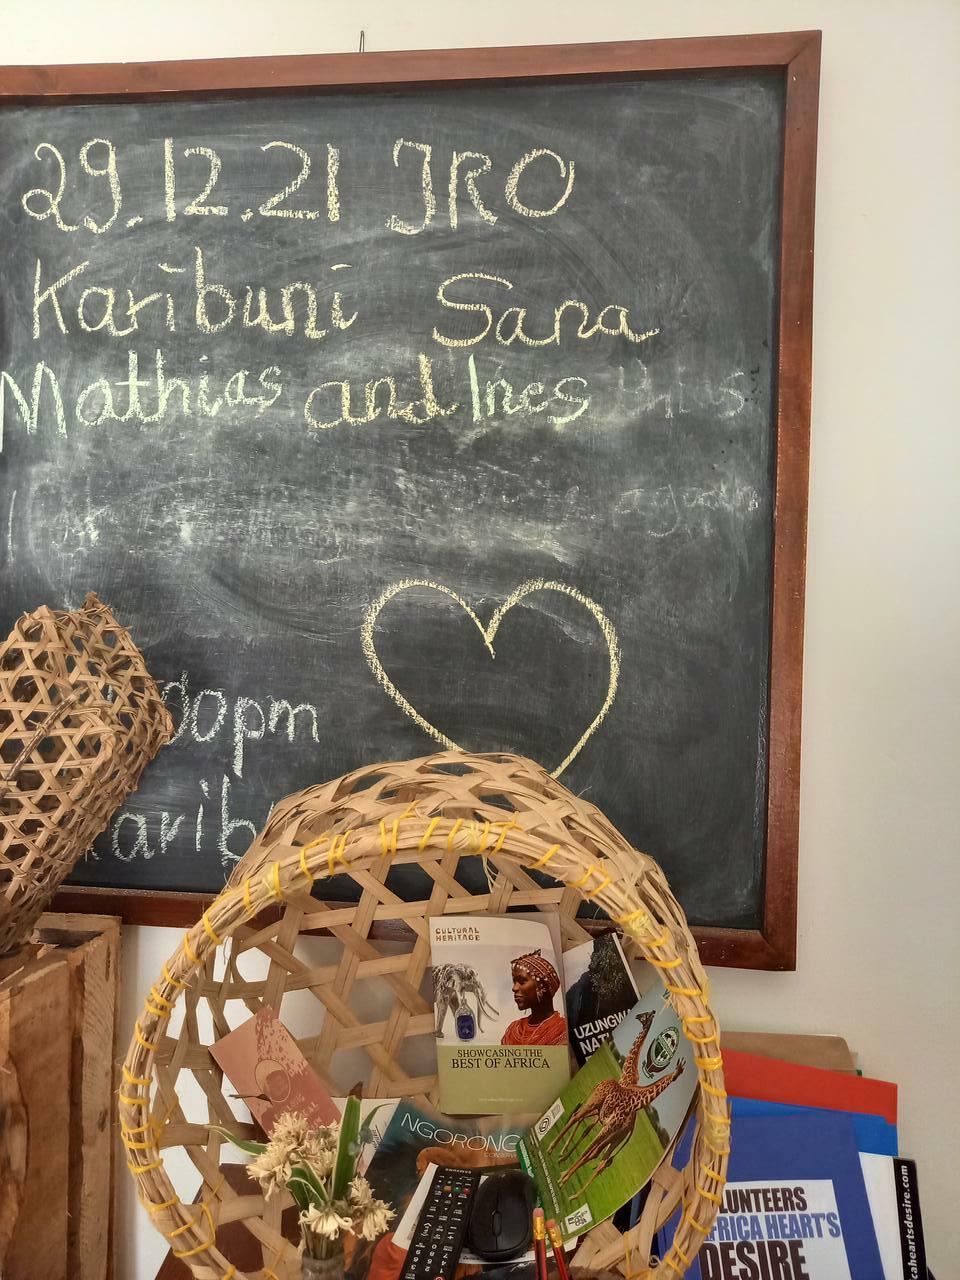 29.12.21 JRO
Karibuni Sana
Mathias and Ines
00pm
CULTURAL
HERITAGE
SHOWCASING THE
BEST OF AFRICA
UZUNGW
NAT
NGORONG
CONSERV
SAMSUNG
LUNTEERS
AFRICA HEART'S
DESIRE
caheartsdesire.com